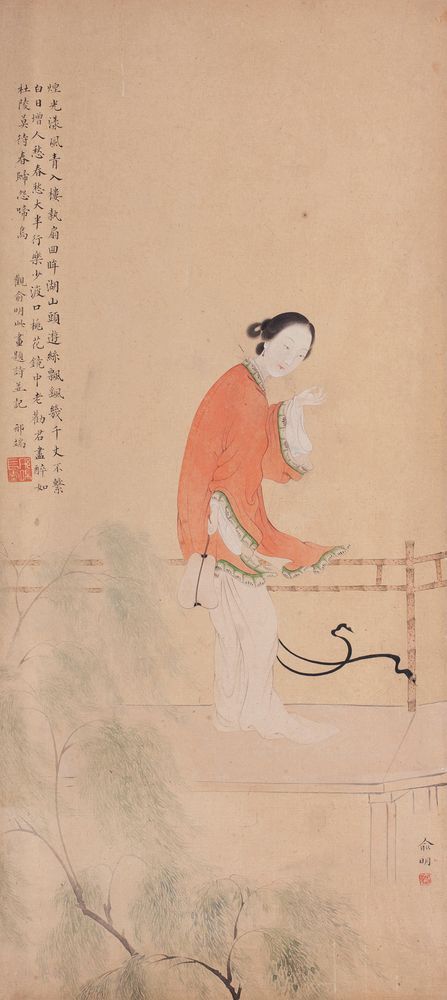 煙光漾風青入樓執扇回眸湖山頭遊絲飄颻幾千丈不繫
白日增人愁春愁大半行樂少渡口桃花鏡中老勸君盡醉如
杜陵莫待春歸怨啼鳥
觀俞明此畫題詩並記
俞明